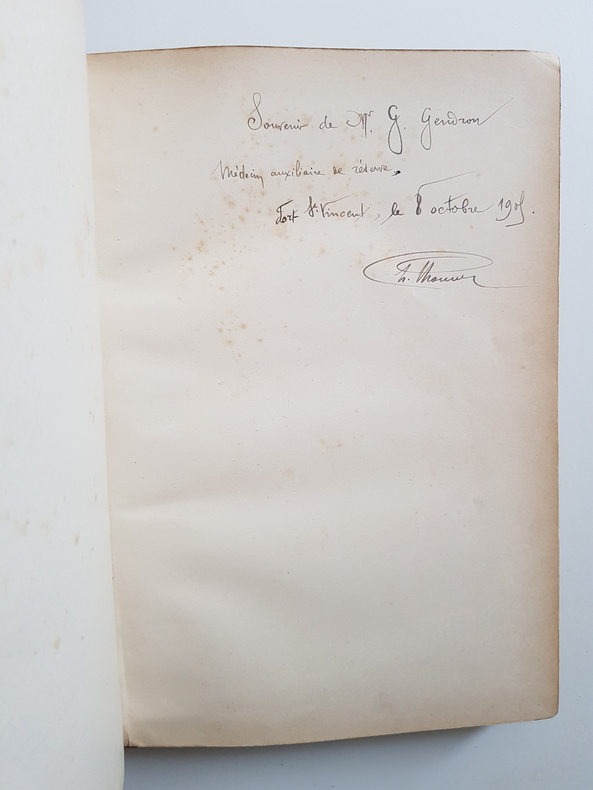 Souvenir de Mr. G. Gendron
Médecin auxiliaire de réserve.
Fort St. Vincent, le 8 octobre 1905.